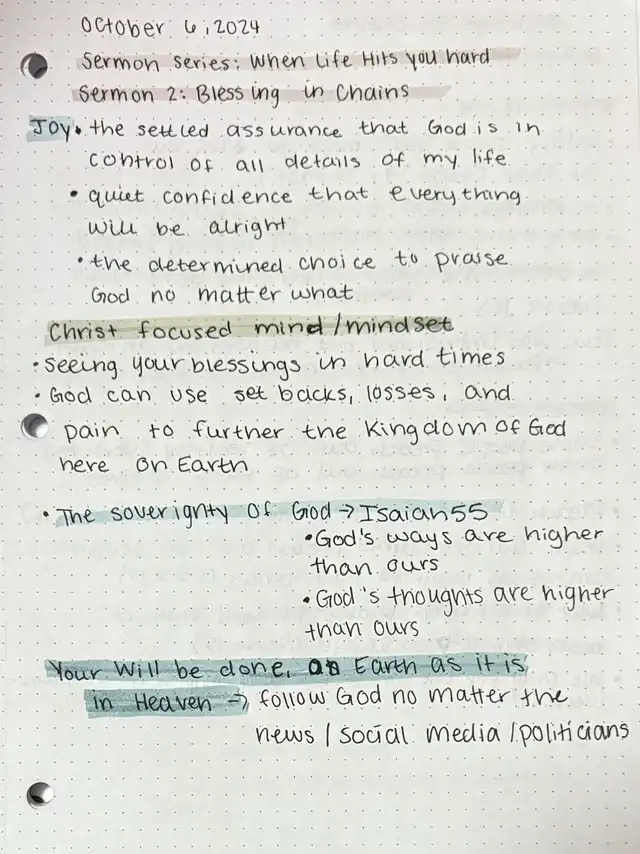 October 6, 2024
Sermon Series: When Life Hits you hard
Sermon 2: Blessing in Chains
Joy • the settled assurance that God is in
control of all details of my life
• quiet confidence that everything
will be alright
• the determined choice to praise
God no matter what
Christ focused mind/mindset
• Seeing your blessings in hard times
• God can use set backs, losses, and
pain to further the Kingdom of God
here on Earth
• The soverignty of God → Isaiah 55
• God's ways are higher
than ours
• God's thoughts are higher
than ours
Your Will be done, on Earth as it is
in Heaven → follow God no matter the
news / social media / politicians